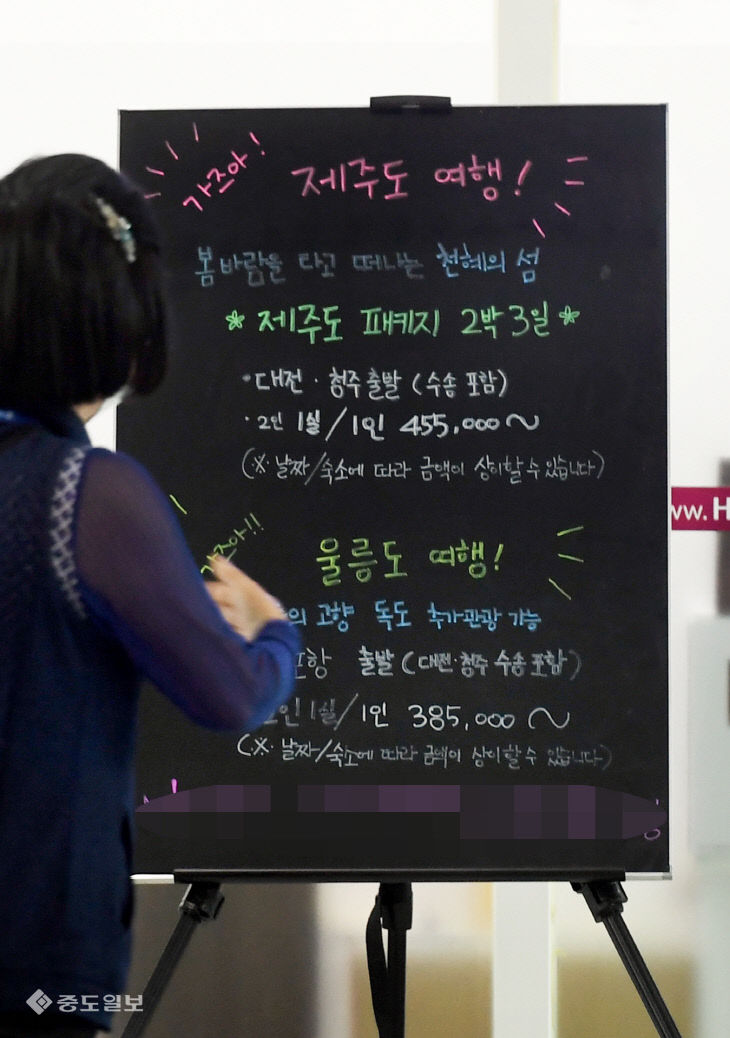 가즈아!
제주도 여행!
봄바람을 타고 떠나는 천혜의 섬
* 제주도 패키지 2박 3일 *
·대전·청주 출발 (수송 포함)
·2인 1실/1인 455,000~
(※ 날짜/숙소에 따라 금액이 상이할 수 있습니다)
가즈아!!
울릉도 여행!
의 고향 독도 추가관광 가능
포항 출발 (대전·청주 수송 포함)
2인 1실/1인 385,000~
(※ 날짜/숙소에 따라 금액이 상이할 수 있습니다)
ww.H
중도일보